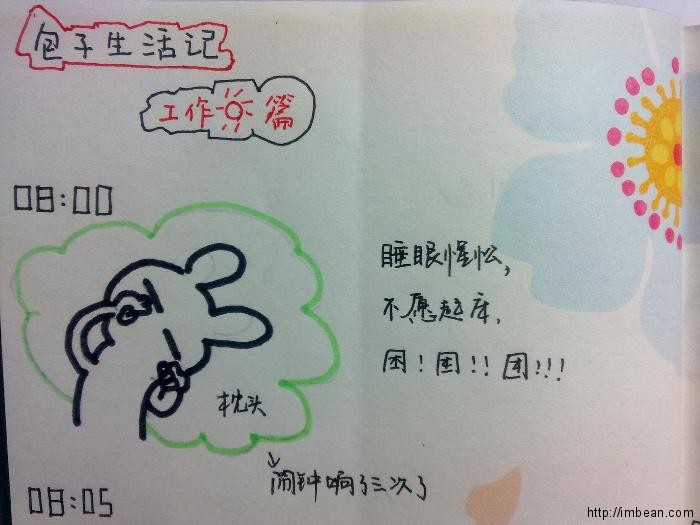 包子生活记
工作篇
08:00
睡眼惺忪,
不愿起床.
困！困！！困！！！
枕头
闹钟响了三次了
08:05
http://imbean.com